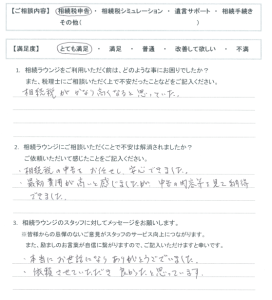 【ご相談内容】 相続税申告 ・ 相続税シミュレーション ・ 遺言サポート ・ 相続手続き
その他( )
【満足度】 とても満足 ・ 満足 ・ 普通 ・ 改善して欲しい ・ 不満
1. 相続ラウンジをご利用いただく前は、どのような事にお困りでしたか？
また、税理士にご相談いただく上で不安だったことなどをご記入ください。
・相続税がかなり高くなると思っていた。
2. 相続ラウンジにご相談いただくことで不安は解消されましたか？
ご依頼いただいて感じたことをご記入ください。
・相続税の申告をお任せし、安心できました。
・最初費用が高いと感じましたが、申告の内容等を見て納得
できました。
3. 相続ラウンジのスタッフに対してメッセージをお願いします。
※皆様からの忌憚のないご意見がスタッフのサービス向上につながります。
また、励ましのお言葉が自信に繋がりますので、ご記入いただけますと幸いです。
・本当にお世話になりありがとうございました。
・依頼させていただき良かったと思っています。